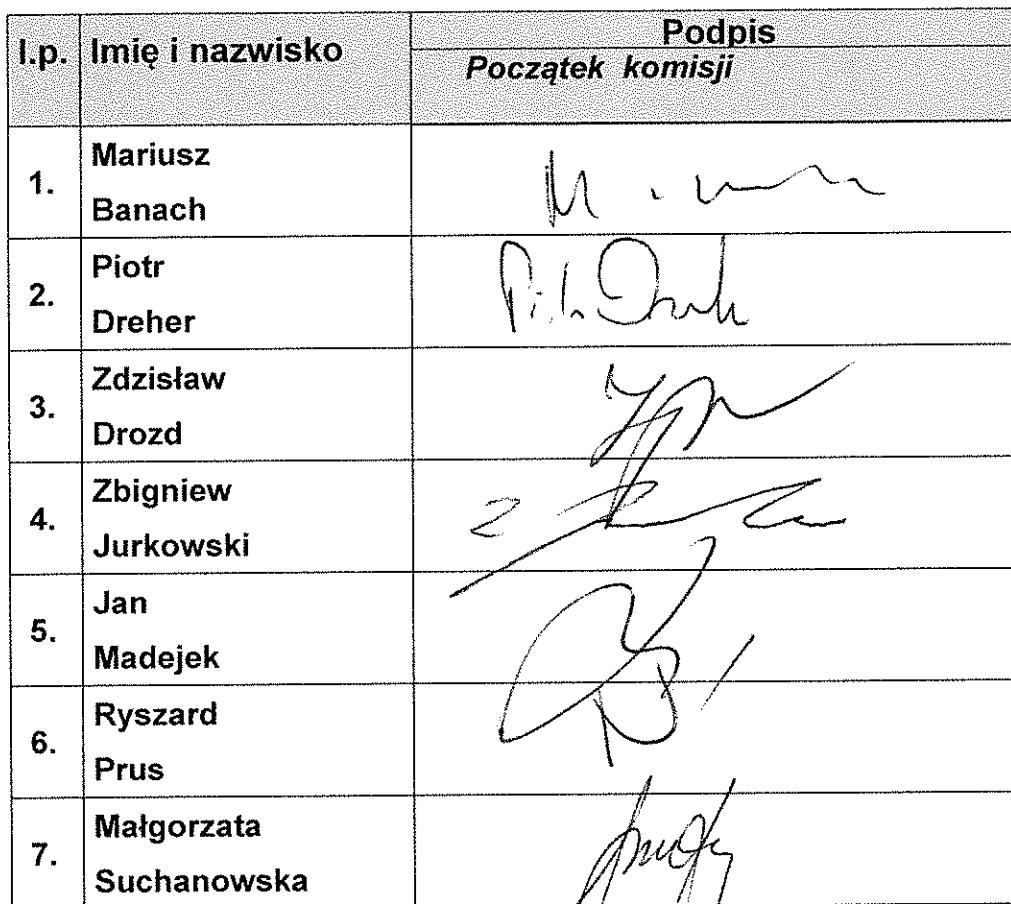 l.p. Imię i nazwisko Podpis
Początek komisji
1. Mariusz
Banach
2. Piotr
Dreher
3. Zdzisław
Drozd
4. Zbigniew
Jurkowski
5. Jan
Madejek
6. Ryszard
Prus
7. Małgorzata
Suchanowska